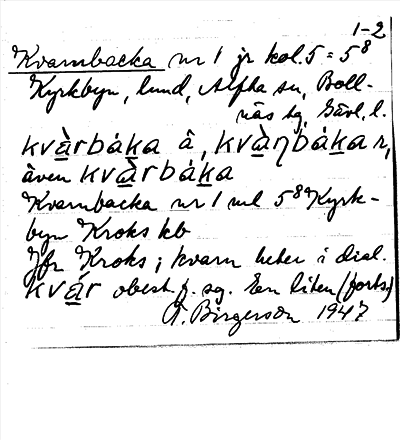 1-2
Kvarnbacka nr 1 jr kol. 5 = 5⁸
Kyrkbyn, lund, Alfta sn, Boll-
näs tg, Gävl. l.
kvàrbáka å, kvàηbáka r,
även kvàrbáka
Kvarnbacka nr 1 ml 5⁸ Kyrk-
byn Kroks kb
Jfr Kroks; kvarn heter i dial.
kvár obest. f. sg. En liten (forts.)
Birgerson 1947